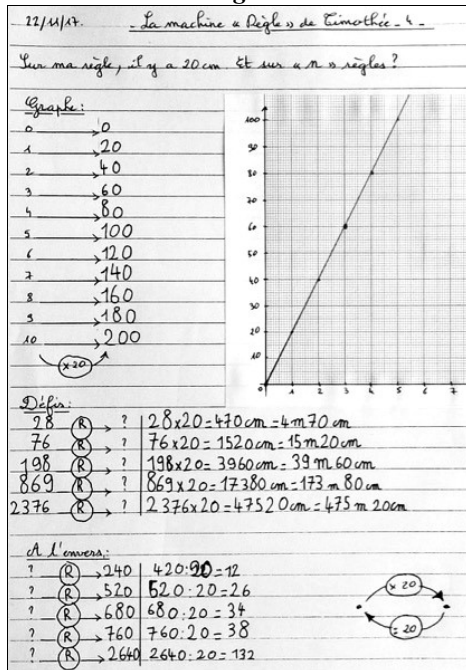 22/11/17. - La machine « Règle » de Timothée - 4 -
Sur ma règle, il y a 20 cm. Et sur « n » règles ?
Graphe :
0 → 0
1 → 20
2 → 40
3 → 60
4 → 80
5 → 100
6 → 120
7 → 140
8 → 160
9 → 180
10 → 200
×20
100
90
80
70
60
50
40
30
20
10
0 1 2 3 4 5 6 7
Défis :
28 R → ? | 28×20=470cm=4m70cm
76 R → ? | 76×20=1520cm=15m20cm
198 R → ? | 198×20=3960cm=39m60cm
869 R → ? | 869×20=17380cm=173m80cm
2376 R → ? | 2376×20=47520cm=475m20cm
A l'envers :
? R → 240 | 420:20=12
? R → 520 | 520:20=26
? R → 680 | 680:20=34
? R → 760 | 760:20=38
? R → 2640 | 2640:20=132
× 20
: 20